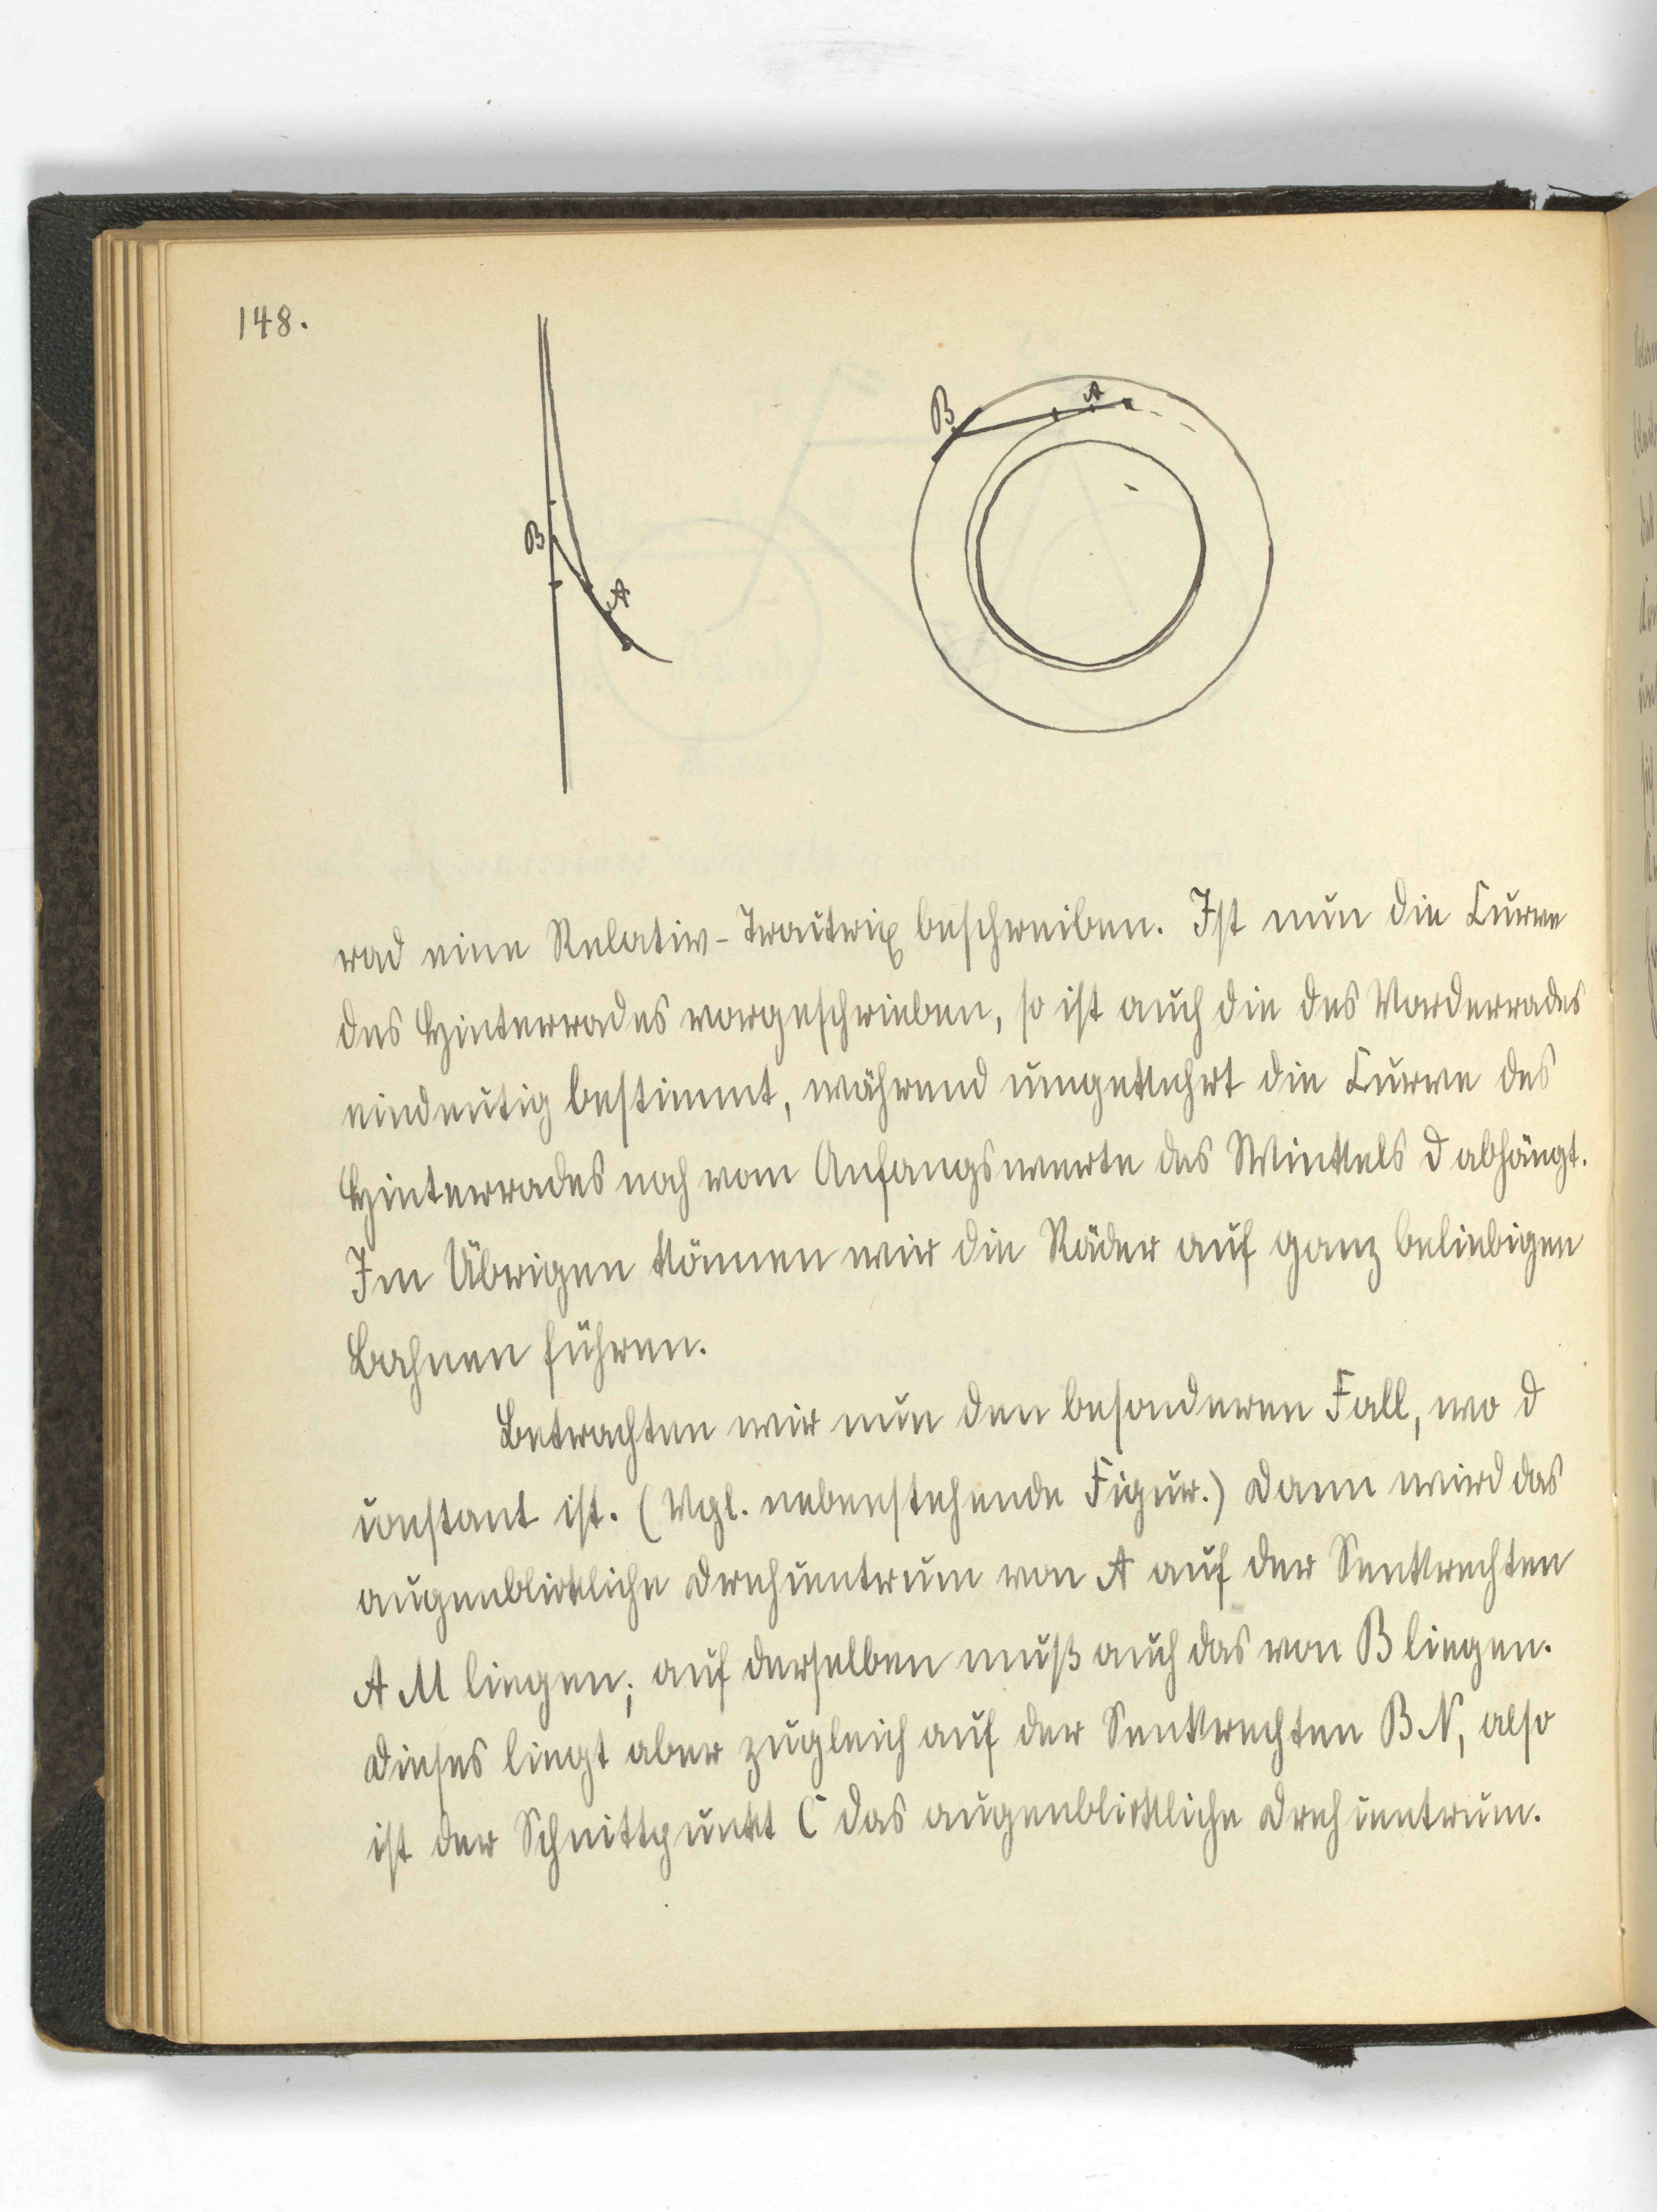 148.
B
A
B
A
rad eine Relativ-Tractrix beschreiben. Ist nun die Curve
des Hinterrades vorgeschrieben, so ist auch die des Vorderrades
eindeutig bestimmt, während umgekehrt die Curve des
Hinterrades noch vom Anfangswerte des Winkels d abhängt.
Im Übrigen können wir die Räder auf ganz beliebigen
Bahnen führen.
Betrachten wir nun den besonderen Fall, wo d
constant ist. (Vgl. nebenstehende Figur.) Dann wird das
augenblickliche Drehcentrum von A auf der Senkrechten
A M liegen; auf derselben muß auch das von B liegen.
Dieses liegt aber zugleich auf der Senkrechten B N, also
ist der Schnittpunkt C das augenblickliche Drehcentrum.